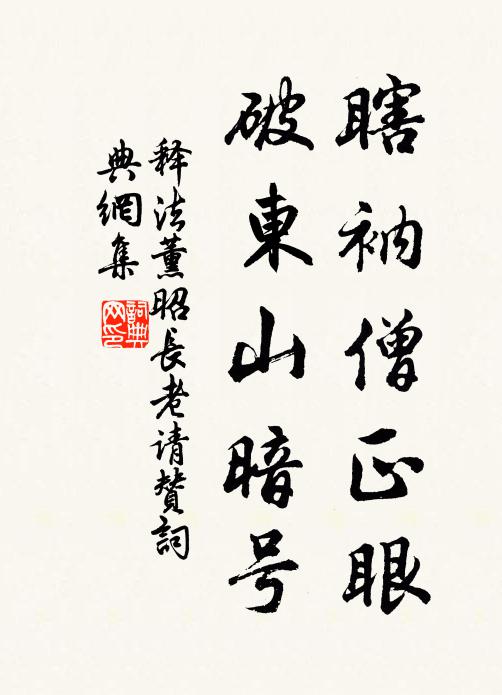 瞎衲僧正眼
破東山暗号
释法薰昭長老请賛詞
典網集
詞典网印